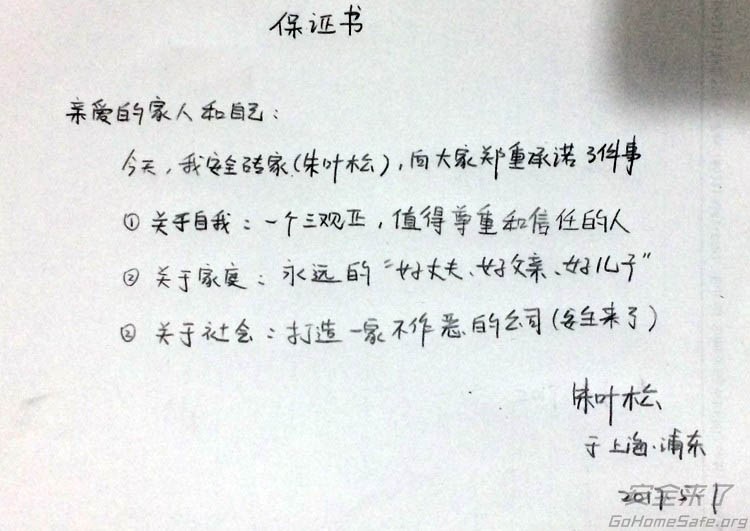 保证书
亲爱的家人和自己：
今天，我安全砖家（朱叶松），向大家郑重承诺3件事
① 关于自我：一个三观正，值得尊重和信任的人
② 关于家庭：永远的“好丈夫、好父亲、好儿子”
③ 关于社会：打造一家不作恶的公司（安全来了）
朱叶松
于上海·浦东
2017.5.1
安全来了
GoHomeSafe.org